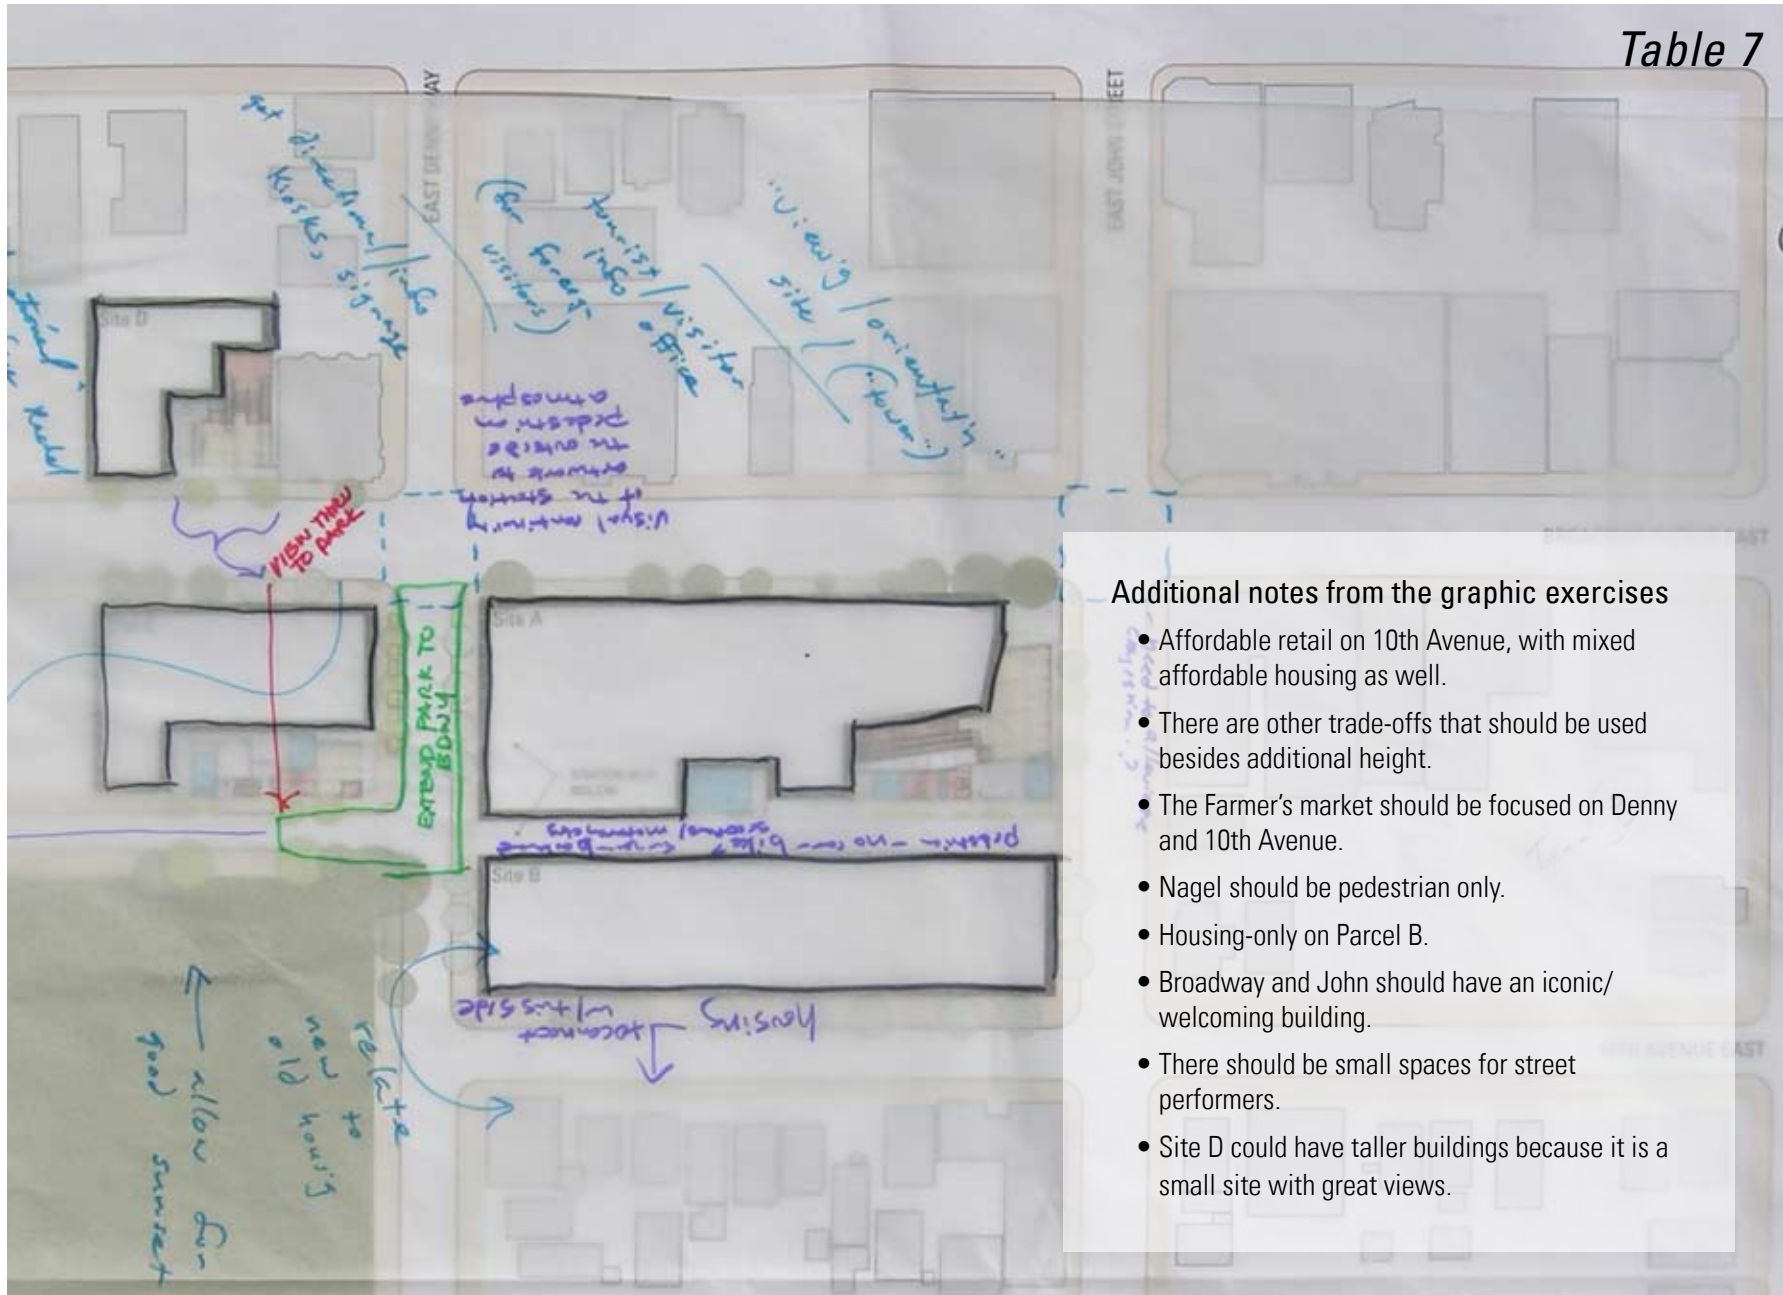 Table 7
EAST DENNY WAY
EAST JOHN STREET
got directional/info
kiosks, signage
(for foreign
visitors)
tourist/visitor
info
office
"view'g/orientat'n"
site/("tower")
Site D
visual continuity
of the station
artwork to
the outside
pedestrian
atmosphre
VIEW THRU
TO PARK
EXTEND PARK TO
BDWY
Site A
STATION BOX
BELOW
pedestrian - no car - bike?
scooters/motorcycles
Site B
housing
to connect
w/this side
relate
new to
old housing
allow for
good sunset
AVENUE EAST
Additional notes from the graphic exercises
• Affordable retail on 10th Avenue, with mixed
affordable housing as well.
• There are other trade-offs that should be used
besides additional height.
• The Farmer's market should be focused on Denny
and 10th Avenue.
• Nagel should be pedestrian only.
• Housing-only on Parcel B.
• Broadway and John should have an iconic/
welcoming building.
• There should be small spaces for street
performers.
• Site D could have taller buildings because it is a
small site with great views.